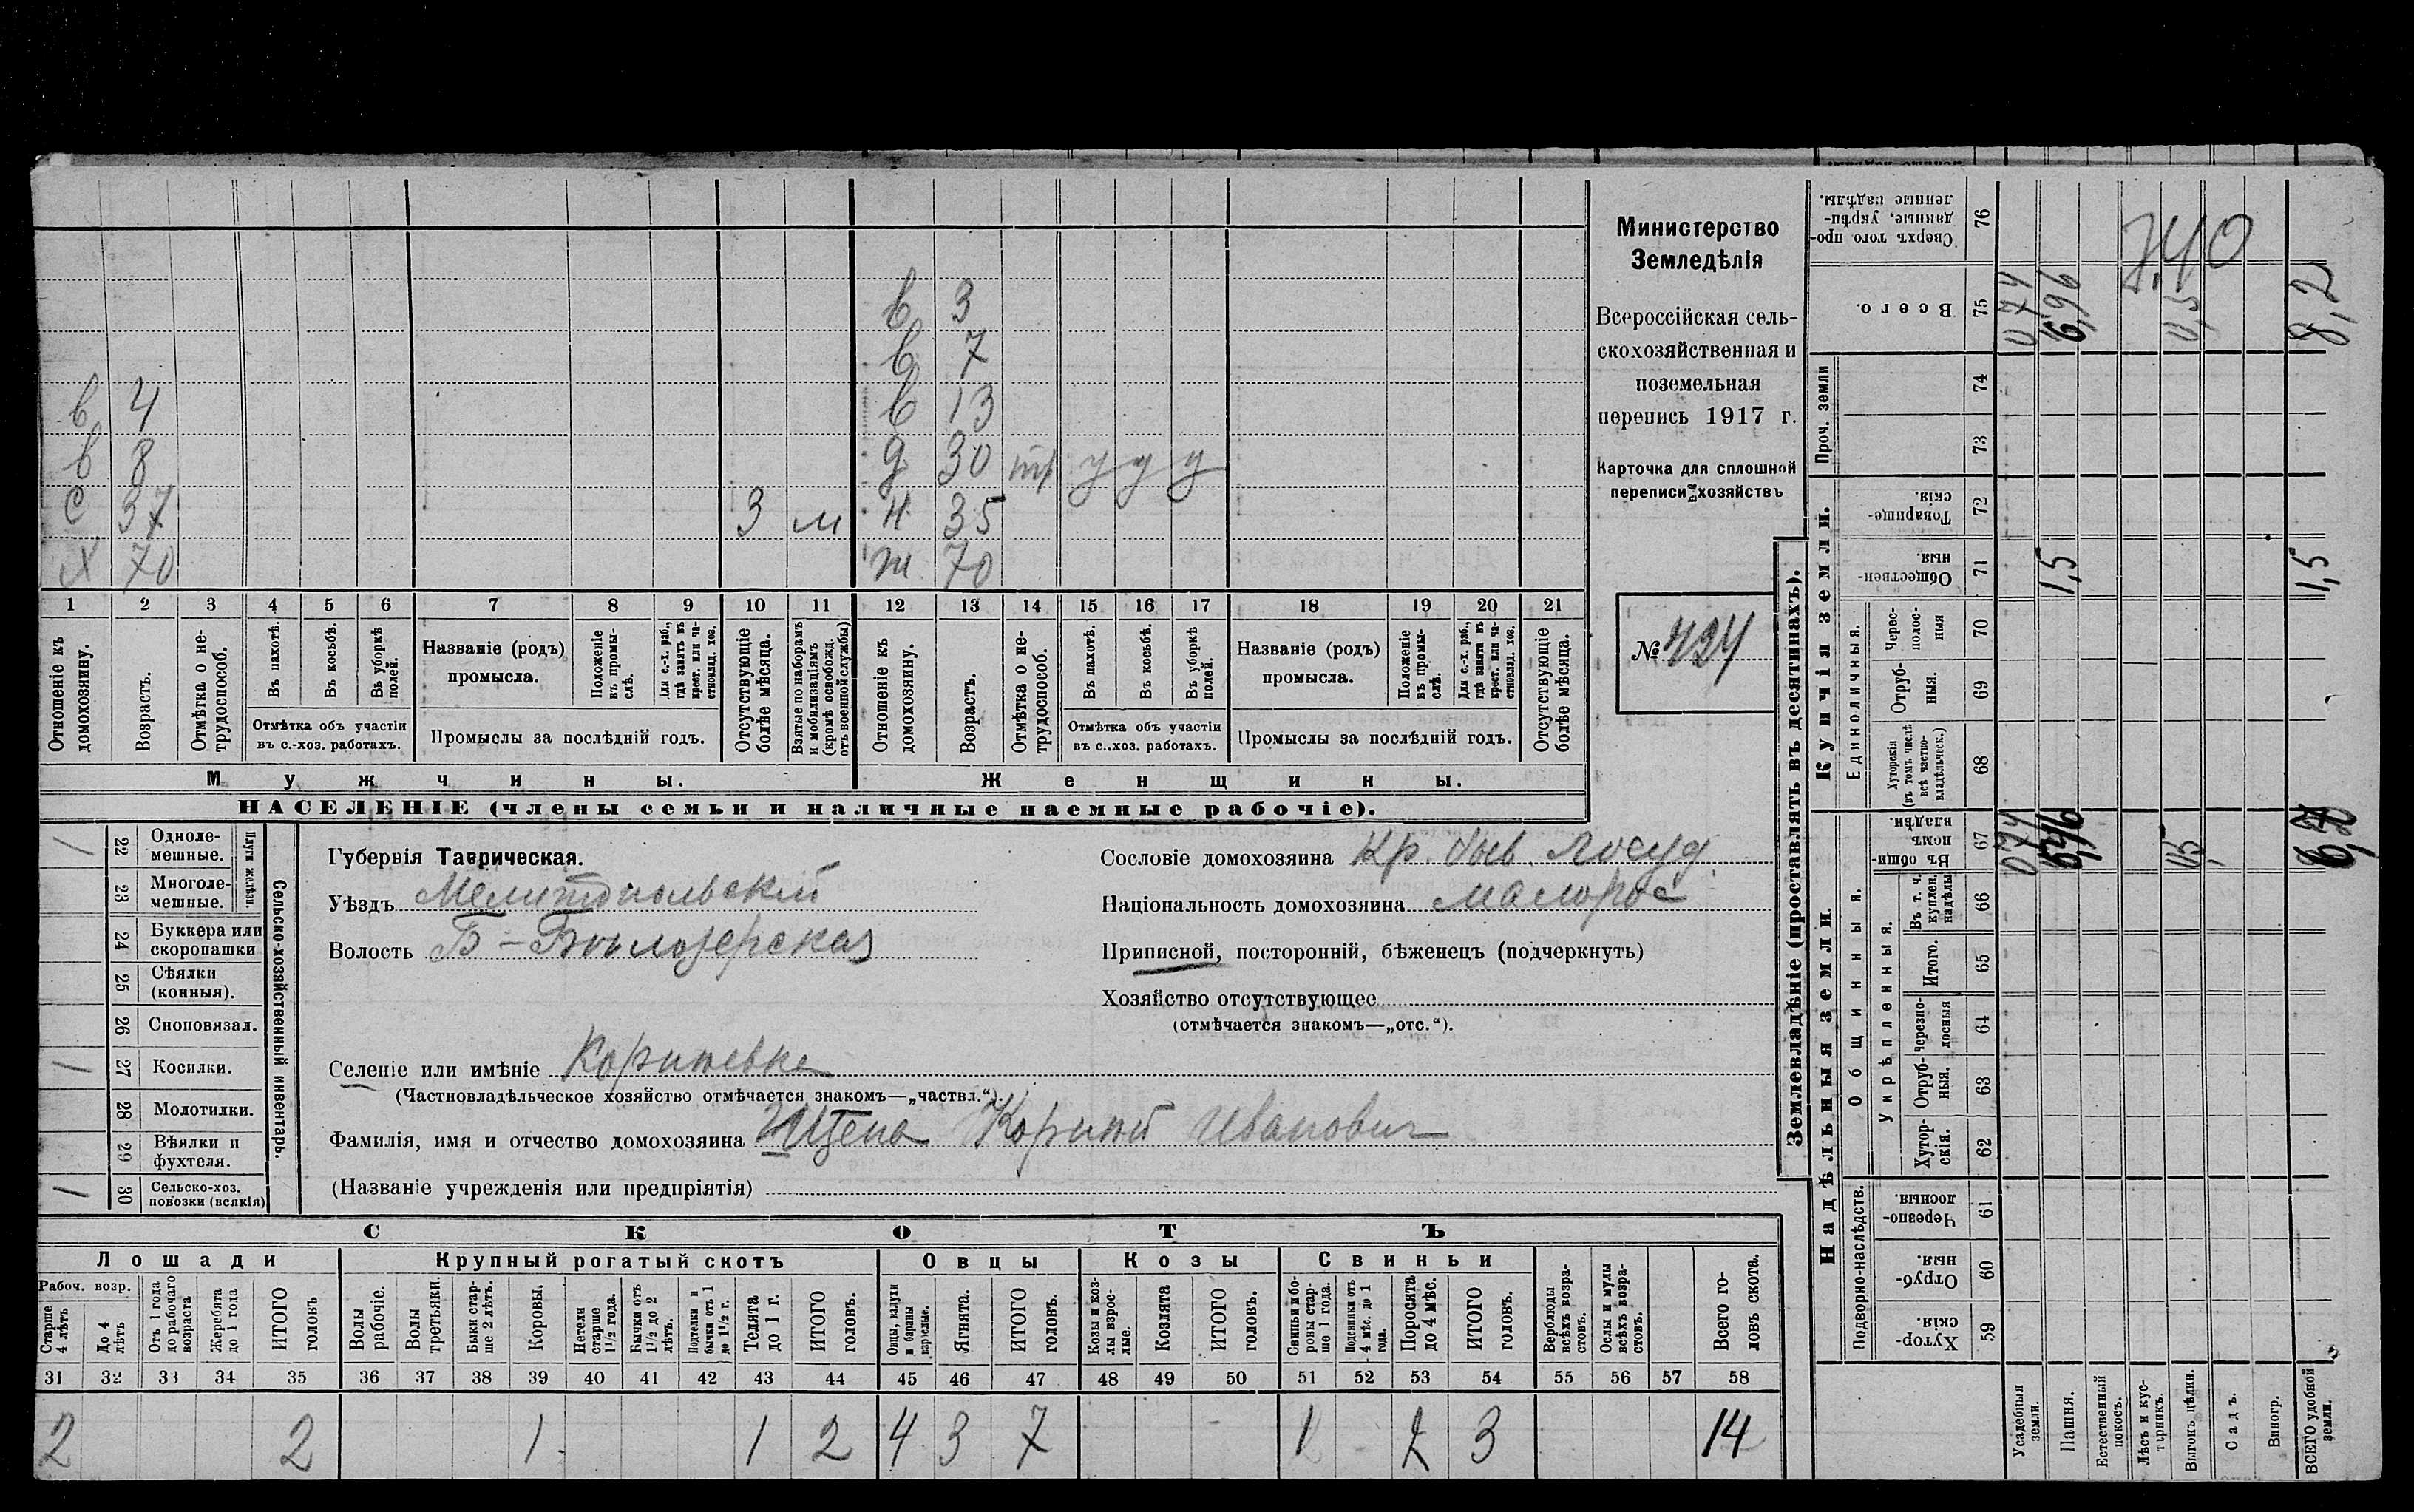 в 3
в 7
в 4 в 13
в 8 д 30 тр у у у
с 37 3 м н 35
х 70 ж 70
1 2 3 4 5 6 7 8 9 10 11 12 13 14 15 16 17 18 19 20 21
Отношеніе къ домохозяину.
Возрастъ.
Отмѣтка о нетрудоспособ.
Въ пахотѣ.
Въ косьбѣ.
Въ уборкѣ полей.
Отмѣтка объ участіи въ с.-хоз. работахъ.
Названіе (родъ) промысла.
Положеніе въ промыслѣ.
Для с.-х. раб., гдѣ занятъ въ крест. или частновлад. хоз.
Промыслы за послѣдній годъ.
Отсутствующіе болѣе мѣсяца.
Взятые по наборамъ и мобилизаціямъ (кромѣ освобожд. отъ военной службы)
Отношеніе къ домохозяину.
Возрастъ.
Отмѣтка о нетрудоспособ.
Въ пахотѣ.
Въ косьбѣ.
Въ уборкѣ полей.
Отмѣтка объ участіи въ с.-хоз. работахъ.
Названіе (родъ) промысла.
Положеніе въ промыслѣ.
Для с.-х. раб., гдѣ занята въ крест. или частновлад. хоз.
Промыслы за послѣдній годъ.
Отсутствующіе болѣе мѣсяца.
Мужчины. Женщины.
НАСЕЛЕНІЕ (члены семьи и наличные наемные рабочіе).
Министерство
Земледѣлія
Всероссійская сель-
скохозяйственная и
поземельная
перепись 1917 г.
Карточка для сплошной
переписи хозяйствъ
№ 424
Сельско-хозяйственный инвентарь.
Плуги желѣзн.
/ 22 Одноле-мешные.
23 Многоле-мешные.
24 Буккера или скоропашки
25 Сѣялки (конныя).
26 Сноповязал.
/ 27 Косилки.
28 Молотилки.
29 Вѣялки и фухтеля.
/ 30 Сельско-хоз. повозки (всякія)
Губернія Таврическая.
Уѣздъ Мелитопольскій
Волость Б-Бѣлозерская
Селеніе или имѣніе
(Частновладѣльческое хозяйство отмѣчается знакомъ—„частвл.“).
Фамилія, имя и отчество домохозяина Иванович
(Названіе учрежденія или предпріятія)
Сословіе домохозяина Кр. быв. госуд.
Національность домохозяина малорос
Приписной, посторонній, бѣженецъ (подчеркнуть)
Хозяйство отсутствующее
(отмѣчается знакомъ—„отс.“).
СКОТЪ
Лошади Крупный рогатый скотъ Овцы Козы Свиньи
Рабоч. возр.
Старше 4 лѣтъ
До 4 лѣтъ
Отъ 1 года до рабочаго возраста
Жеребята до 1 года
ИТОГО головъ
Волы рабочіе.
Волы третьяки.
Быки старше 2 лѣтъ.
Коровы.
Нетели старше 1½ года.
Бычки отъ 1½ до 2 лѣтъ.
Подтелки и бычки отъ 1 до 1½ г.
Телята до 1 г.
ИТОГО головъ.
Овцы, валухи и бараны взрослые.
Ягнята.
ИТОГО головъ.
Козы и козлы взрослые.
Козлята
ИТОГО головъ.
Свиньи и боровы старше 1 года.
Подсвинки отъ 4 мѣс. до 1 года.
Поросята до 4 мѣс.
ИТОГО головъ.
Верблюды всѣхъ возрастовъ.
Ослы и мулы всѣхъ возрастовъ.
Всего головъ скота.
31 32 33 34 35 36 37 38 39 40 41 42 43 44 45 46 47 48 49 50 51 52 53 54 55 56 57 58
2 2 1 1 2 4 3 7 1 2 3 14
Землевладѣніе (проставлять въ десятинахъ).
Надѣльныя земли. Купчія земли. Проч. земли
Подворно-наслѣдств. Общинныя. Укрѣпленныя. Единоличныя.
Хуторскія 59
Отрубныя. 60
Черезполосныя. 61
Хуторскія. 62
Отрубныя. 63
Черезполосныя 64
Итого. 65
Въ т. ч. куплен. надѣлы 66
Въ общинномъ владѣн. 67
Хуторскія (въ томъ числѣ всѣ частновладѣльческ.) 68
Отрубныя. 69
Чересполосныя 70
Общественныя. 71
Товарищескія. 72
73
74
Всего. 75
Сверхъ того проданные, укрѣпленные надѣлы. 76
Усадебныя земли. 0,74 0,74
Пашня. 5,46 1,5 6,96
Естественный покосъ.
Лѣсъ и кустарникъ.
Выгонъ цѣлин. 0,5 0,5
Садъ.
Виногр.
ВСЕГО удобной земли. 1,5 8,2
7,40